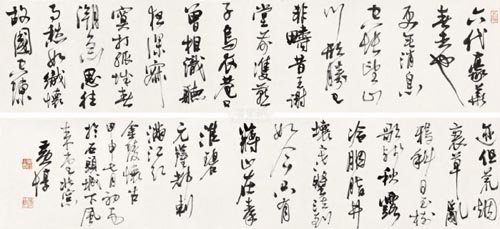 六代豪華
春去也
更無消息
空悵望山
川形勝已
非疇昔王謝
堂前雙燕
子烏衣巷口
曾相識聽
夜深寂
寞打孤城春
潮急思往
事愁如織懷
故國空陳
迹但荒煙
衰草亂
鴉斜日玉樹
歌殘秋露
冷胭脂井
壞寒螿泣到
如今只有
蔣山青秦
淮碧
元薩都剌
滿江紅
金陵懷古
甲申七月初
於石頭城下風